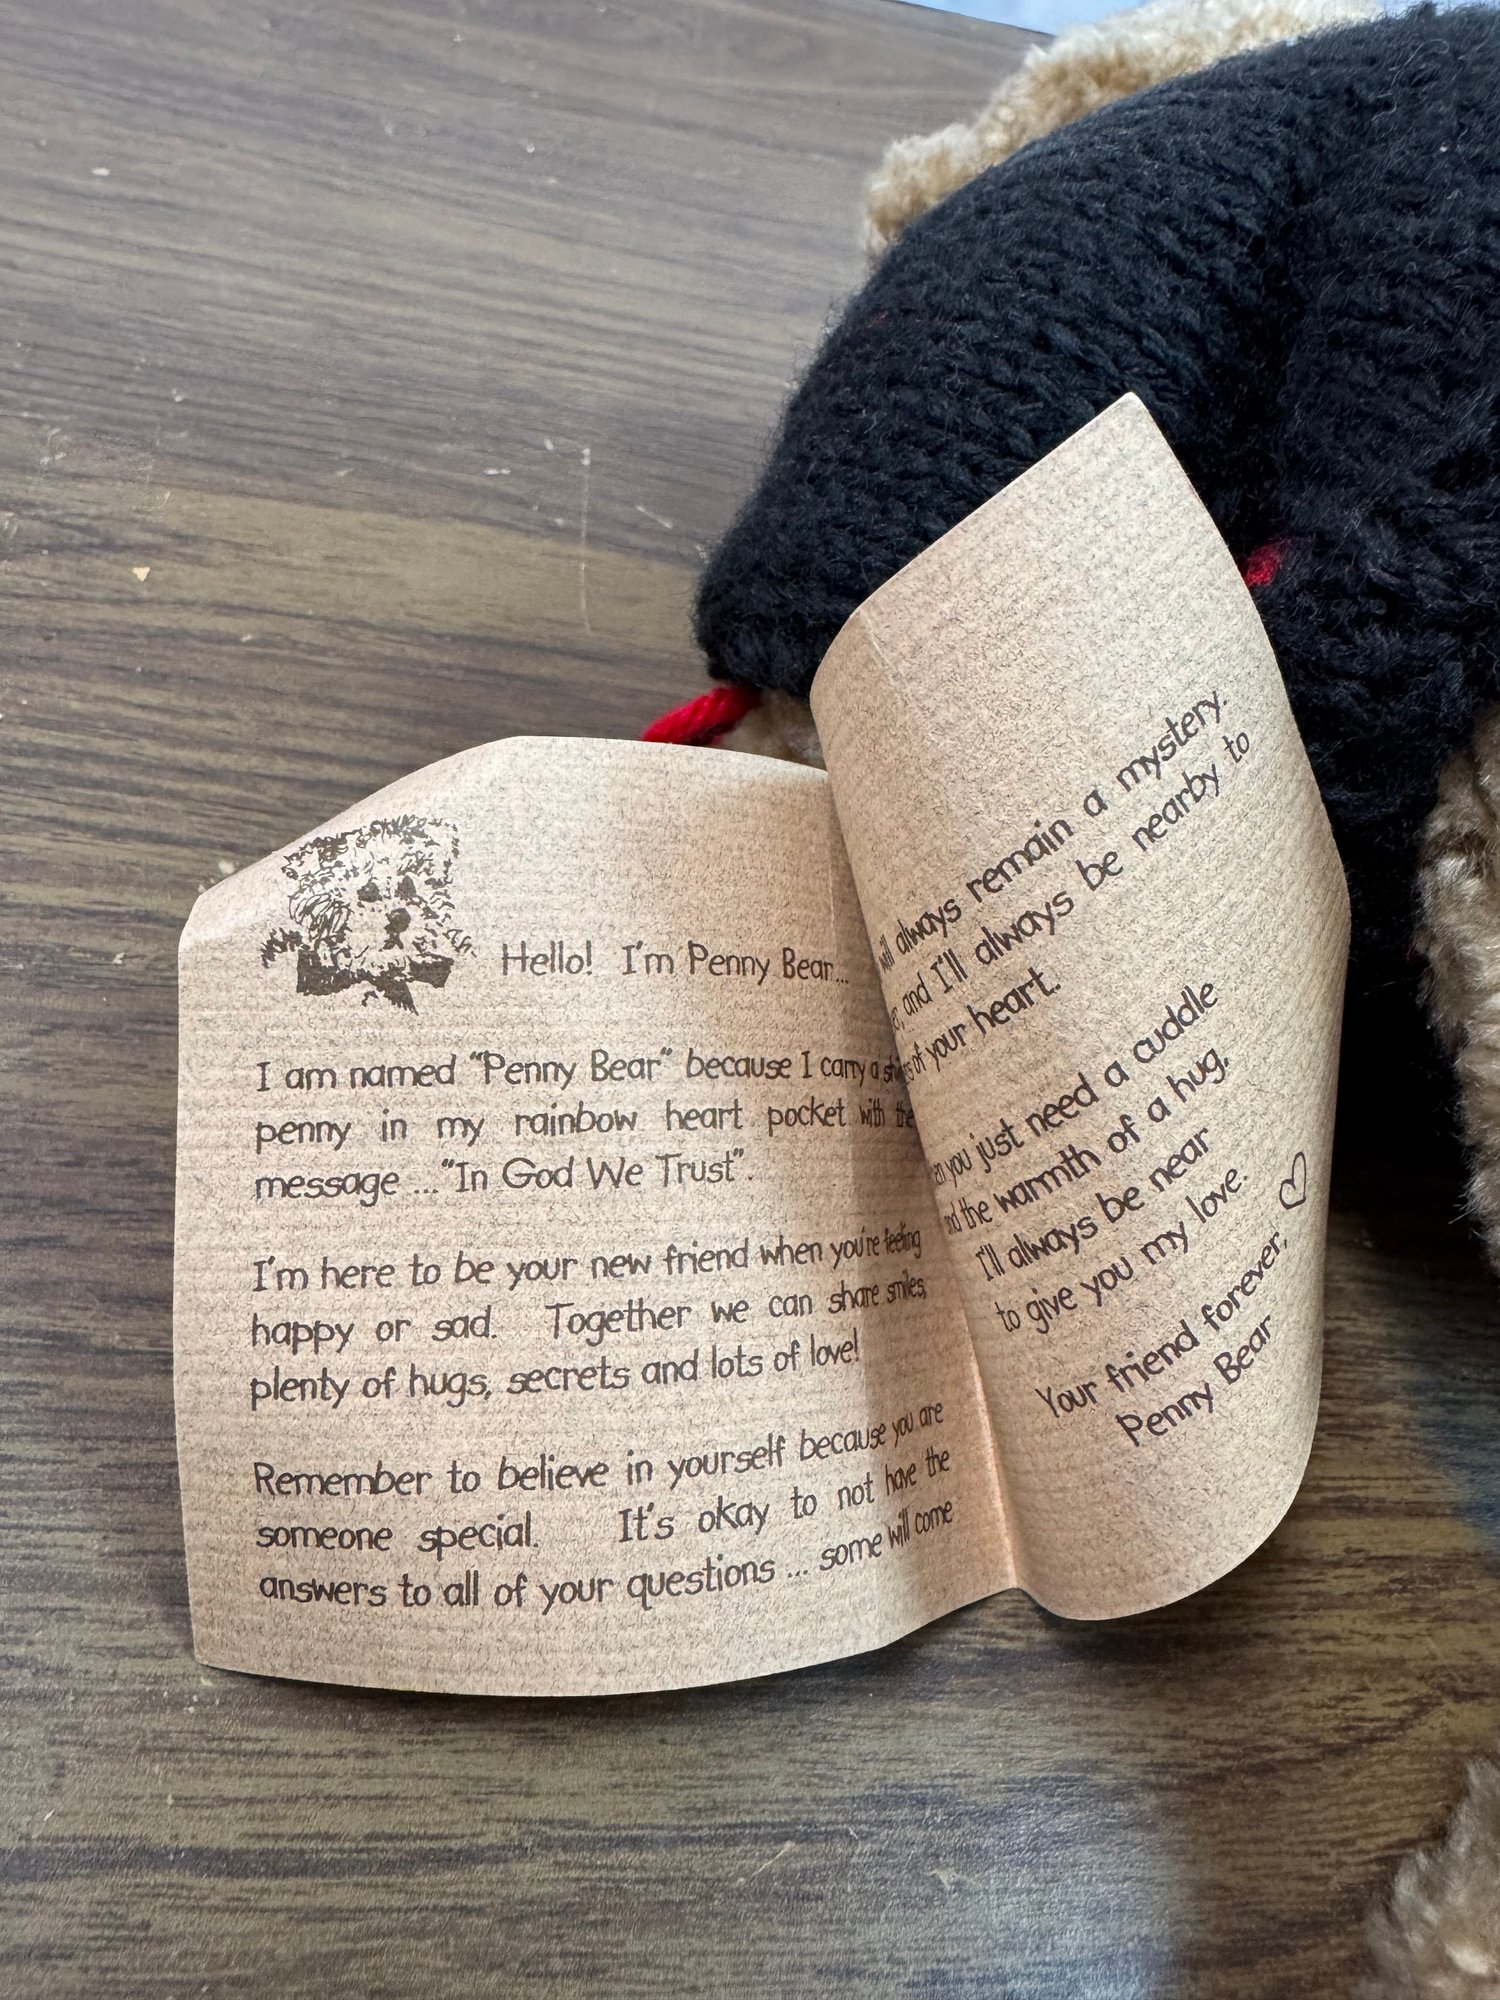 Hello! I'm Penny Bear...
I am named "Penny Bear" because I carry a
penny in my rainbow heart pocket with the
message ..."In God We Trust".
I'm here to be your new friend when you're feeling
happy or sad. Together we can share smiles,
plenty of hugs, secrets and lots of love!
Remember to believe in yourself because you are
someone special. It's okay to not have the
answers to all of your questions ... some will come
will always remain a mystery.
and I'll always be nearby to
of your heart.
you just need a cuddle
the warmth of a hug,
I'll always be near
to give you my love.
Your friend forever,
Penny Bear